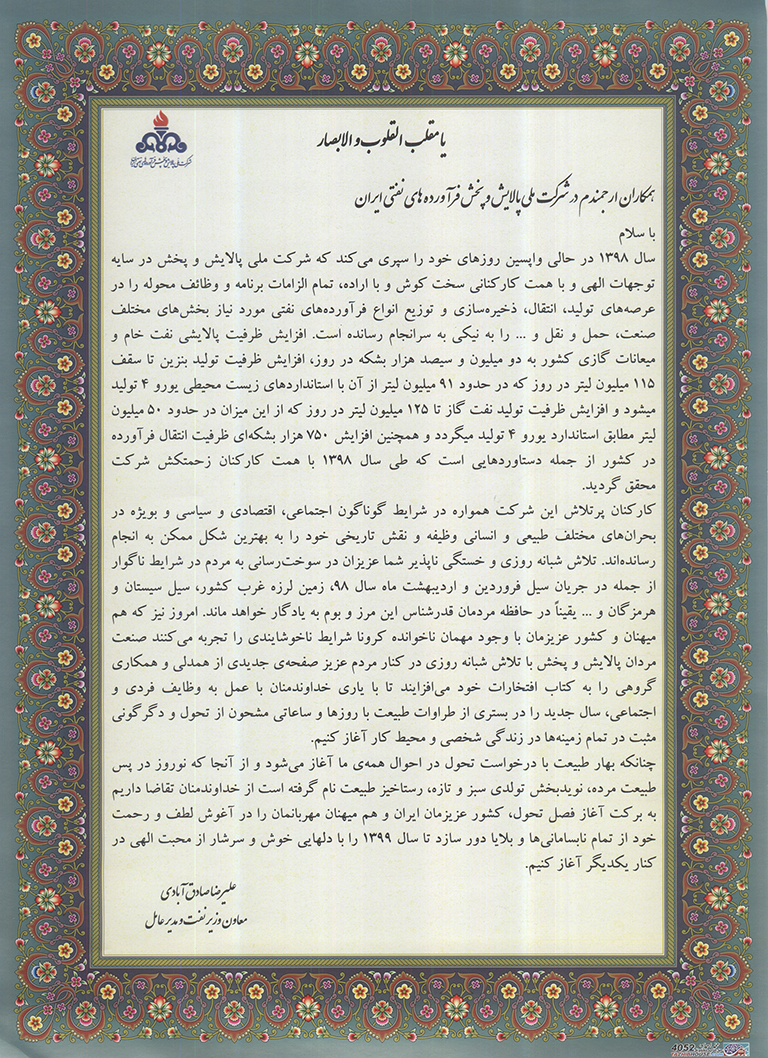 یا مقلب القلوب و الابصار
همکاران ارجمندم در شرکت ملی پالایش و پخش فرآورده های نفتی ایران
با سلام
سال ۱۳۹۸ در حالی واپسین روزهای خود را سپری می‌کند که شرکت ملی پالایش و پخش در سایه
توجهات الهی و با همت کارکنانی سخت کوش و با اراده، تمام الزامات برنامه و وظائف محوله را در
عرصه‌های تولید، انتقال، ذخیره‌سازی و توزیع انواع فرآورده‌های نفتی مورد نیاز بخش‌های مختلف
صنعت، حمل و نقل و ... را به نیکی به سرانجام رسانده است. افزایش ظرفیت پالایشی نفت خام و
میعانات گازی کشور به دو میلیون و سیصد هزار بشکه در روز، افزایش ظرفیت تولید بنزین تا سقف
۱۱۵ میلیون لیتر در روز که در حدود ۹۱ میلیون لیتر از آن با استانداردهای زیست محیطی یورو ۴ تولید
میشود و افزایش ظرفیت تولید نفت گاز تا ۱۲۵ میلیون لیتر در روز که از این میزان در حدود ۵۰ میلیون
لیتر مطابق استاندارد یورو ۴ تولید میگردد و همچنین افزایش ۷۵۰ هزار بشکه‌ای ظرفیت انتقال فرآورده
در کشور از جمله دستاوردهایی است که طی سال ۱۳۹۸ با همت کارکنان زحمتکش شرکت
محقق گردید.
کارکنان پرتلاش این شرکت همواره در شرایط گوناگون اجتماعی، اقتصادی و سیاسی و بویژه در
بحران‌های مختلف طبیعی و انسانی وظیفه و نقش تاریخی خود را به بهترین شکل ممکن به انجام
رسانده‌اند. تلاش شبانه روزی و خستگی ناپذیر شما عزیزان در سوخت‌رسانی به مردم در شرایط ناگوار
از جمله در جریان سیل فروردین و اردیبهشت ماه سال ۹۸، زمین لرزه غرب کشور، سیل سیستان و
هرمزگان و ... یقیناً در حافظه مردمان قدرشناس این مرز و بوم به یادگار خواهد ماند. امروز نیز که هم
میهنان و کشور عزیزمان با وجود مهمان ناخوانده کرونا شرایط ناخوشایندی را تجربه می‌کنند صنعت
مردان پالایش و پخش با تلاش شبانه روزی در کنار مردم عزیز صفحه‌ی جدیدی از همدلی و همکاری
گروهی را به کتاب افتخارات خود می‌افزایند تا با یاری خداوندمنان با عمل به وظایف فردی و
اجتماعی، سال جدید را در بستری از طراوات طبیعت با روزها و ساعاتی مشحون از تحول و دگرگونی
مثبت در تمام زمینه‌ها در زندگی شخصی و محیط کار آغاز کنیم.
چنانکه بهار طبیعت با درخواست تحول در احوال همه‌ی ما آغاز می‌شود و از آنجا که نوروز در پس
طبیعت مرده، نویدبخش تولدی سبز و تازه، رستاخیز طبیعت نام گرفته است از خداوندمنان تقاضا داریم
به برکت آغاز فصل تحول، کشور عزیزمان ایران و هم میهنان مهربانمان را در آغوش لطف و رحمت
خود از تمام نابسامانی‌ها و بلایا دور سازد تا سال ۱۳۹۹ را با دلهایی خوش و سرشار از محبت الهی در
کنار یکدیگر آغاز کنیم.
علیرضا صادق آبادی
معاون وزیر نفت و مدیر عامل
4052